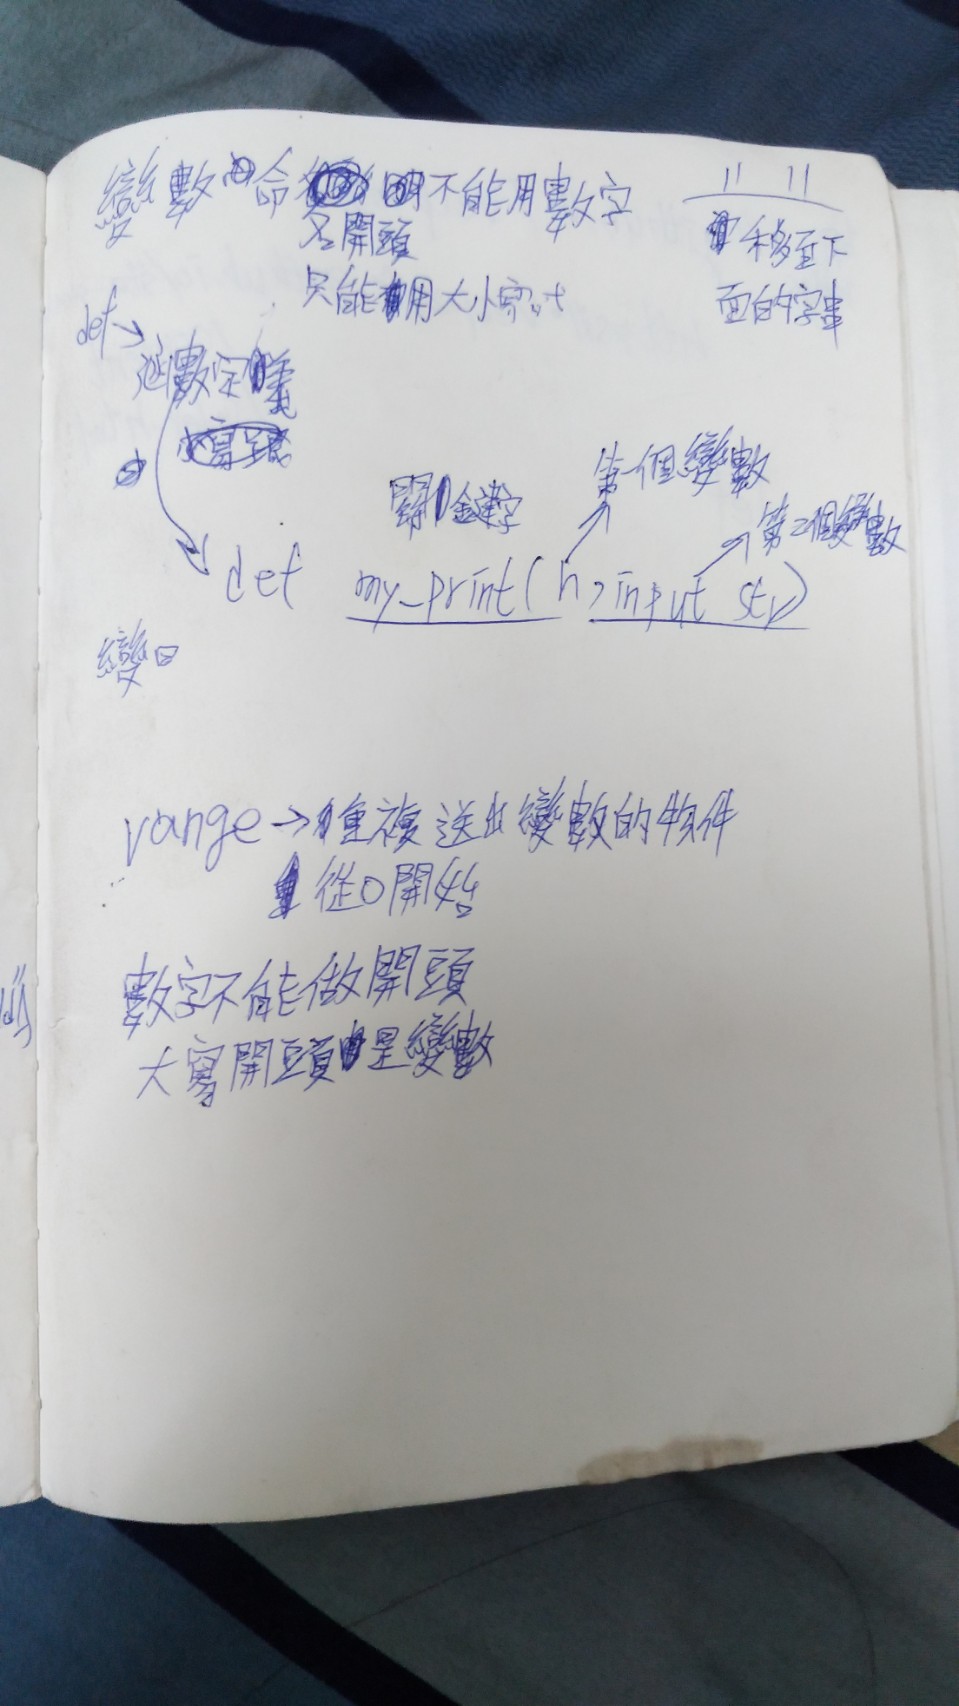 變數命 不能用數字
名開頭
只能用大小寫
" "
移至下
面的字串
def→
涵數定義
關鍵字
第一個變數
第二個變數
def my_print(n,input str)
變
range→重複送出變數的物件
從0開始
數字不能做開頭
大寫開頭是變數